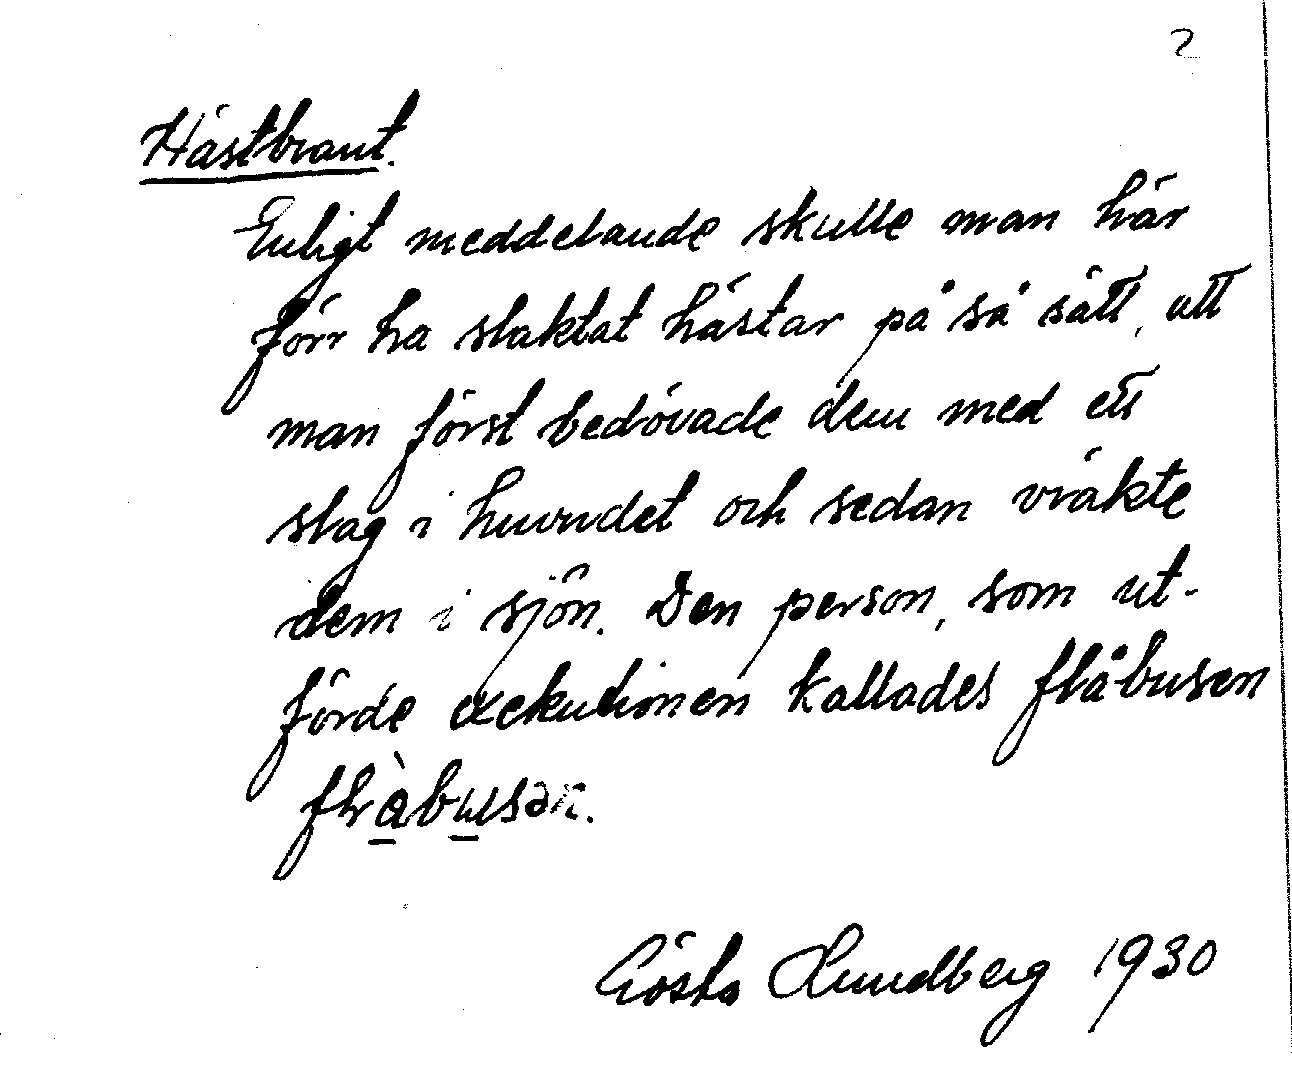 2
Hästbrant.
Enligt meddelande skulle man här
förr ha slaktat hästar på så sätt, att
man först bedövade dem med ett
slag i huvudet och sedan vräkte
dem i sjön. Den person, som ut-
förde exekutionen kallades flåbusen
Gösta Lundberg 1930